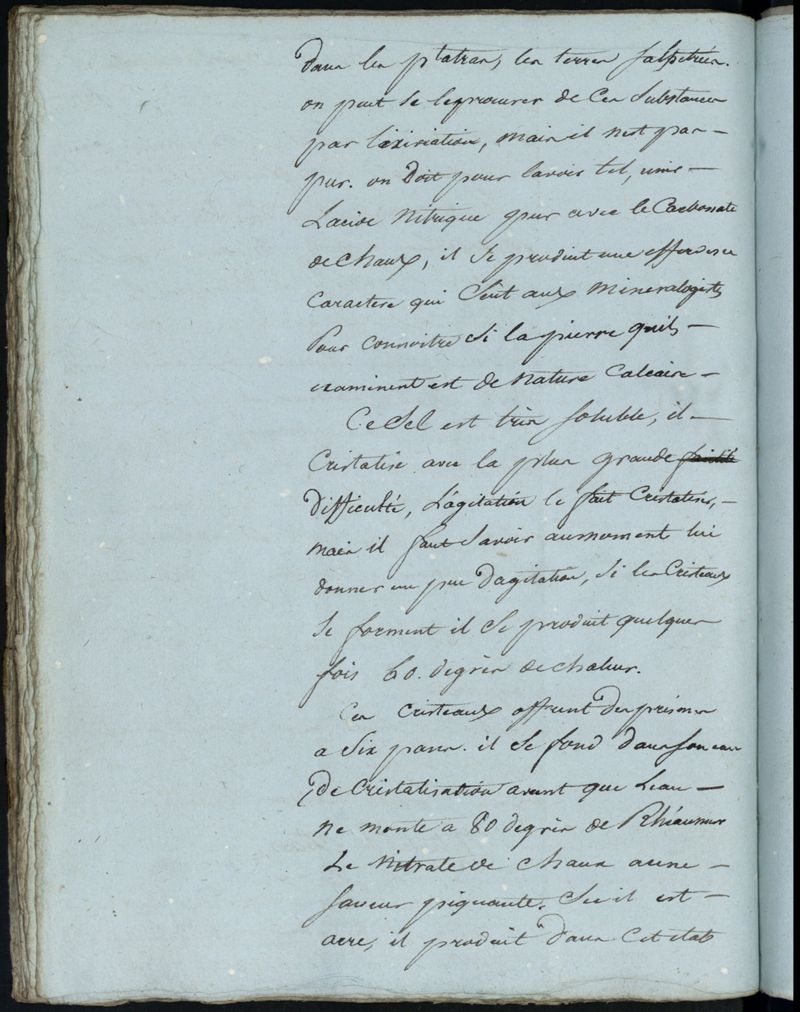 dans les platras, les terres salpetrées.
on peut se le procurer de ces substances
par lixiviation, mais il n'est pas —
pur. on Doit pour lavoir tel, unir —
Lacide Nitrique pur avec le Carbonate
de chaux, il se produit une effervesce
Caractere qui sert aux mineralogists
Pour connoitre si la pierre quils —
examinent est de nature Calcaire —
Ce Sel est très soluble, il —
Cristalise avec la plus grande facilité
Difficulté, L'agitation le fait Cristaliser, —
mais il faut savoir aumoment lui
donner un peu D'agitation, Si les Cristeaux
se forment il se produit quelques
fois 60. degrés de chaleur.
Ces Cristeaux offrent Des prismes
a six pans. il se fond dans son eau
De Cristalisation avant que Leau —
ne monte a 80 degrés de Rhéaumur
Le Nitrate de chaux a une —
saveur piquante. Sec il est —
acre, il produit dans cet etat